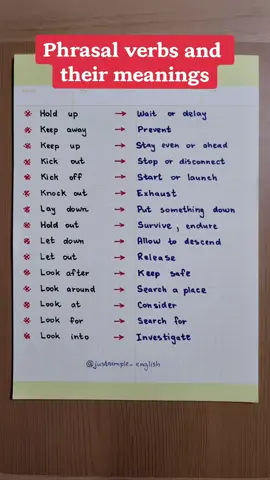 Phrasal verbs and
their meanings
Hold up → Wait or delay
Keep away → Prevent
Keep up → Stay even or ahead
Kick out → Stop or disconnect
Kick off → Start or launch
Knock out → Exhaust
Lay down → Put something down
Hold out → Survive, endure
Let down → Allow to descend
Let out → Release
Look after → Keep safe
Look around → Search a place
Look at → Consider
Look for → Search for
Look into → Investigate